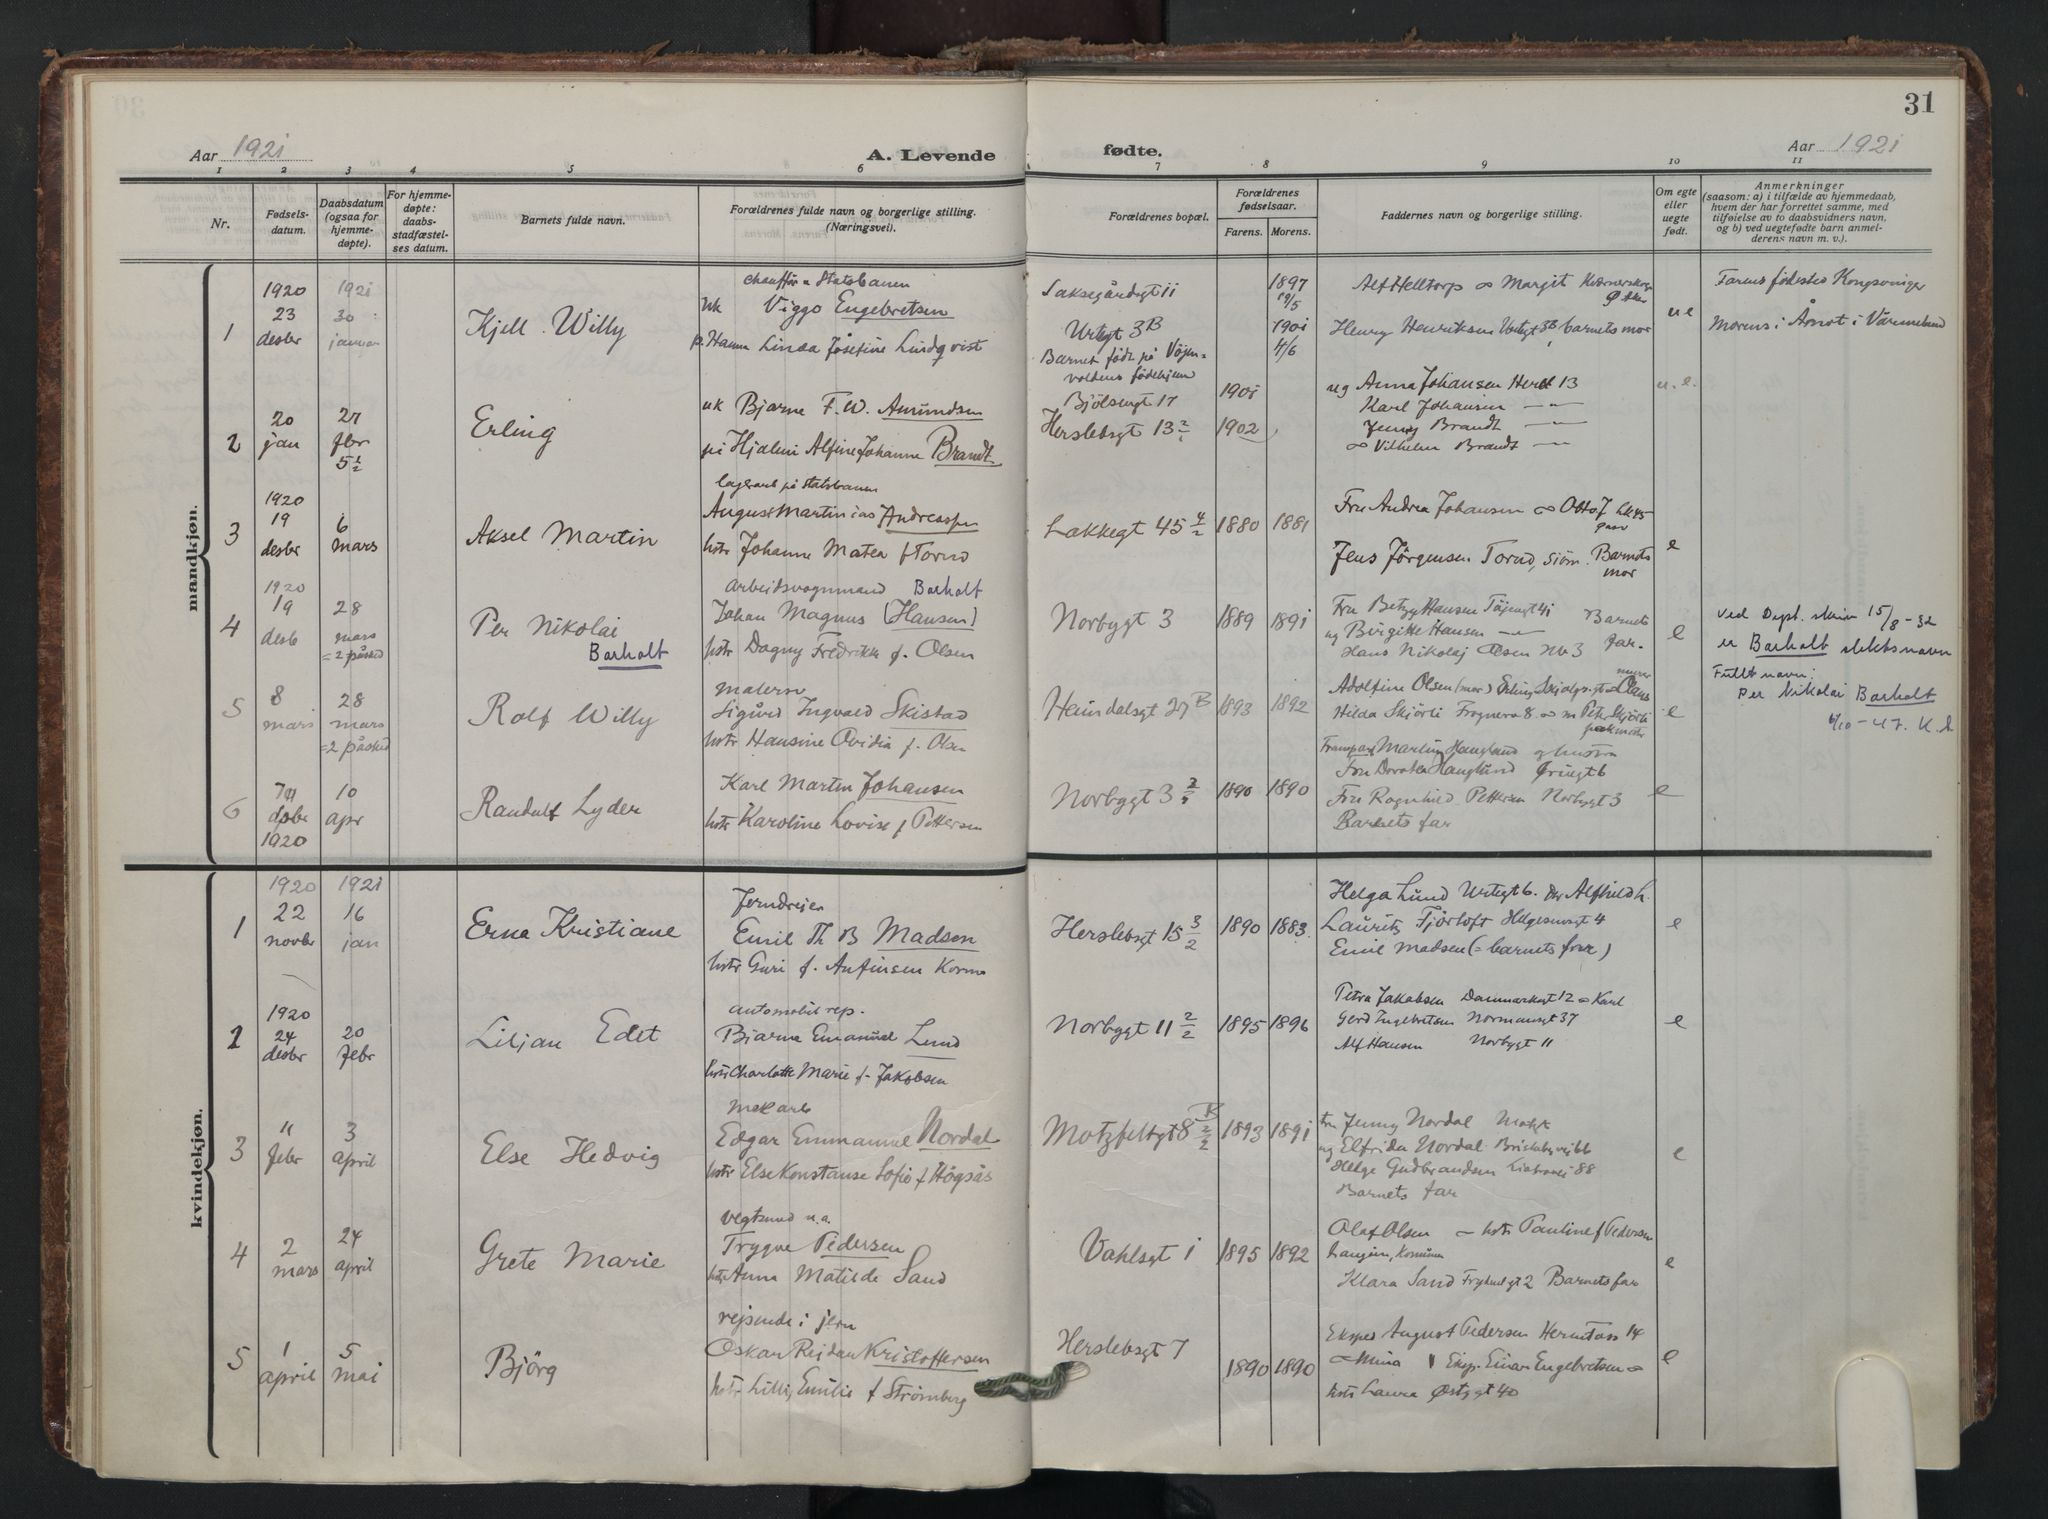 31
Aar 1921
A. Levende
fødte.
Aar 1921
1 2 3 4 5 6 7 8 9 10 11
Nr.
Fødsels-
datum.
Daabsdatum
(ogsaa for
hjemme-
døpte).
For hjemme-
døpte:
daabs-
stadfæstel-
ses datum.
Barnets fulde navn.
Forældrenes fulde navn og borgerlige stilling.
(Næringsvei).
Forældrenes bopæl.
Forældrenes
fødselsaar.
Farens. Morens.
Faddernes navn og borgerlige stilling.
Om egte
eller
uegte
født.
Anmerkninger
(saasom: a) i tilfælde av hjemmedaab,
hvem der har forrettet samme, med
tilføielse av to daabsvidners navn,
og b) ved uegtefødte barn anmel-
derens navn m. v.).
mandkjøn.
1
1920
23
desbr
1921
30
januar
Kjell Willy
chauffør v Statsbanen
uk Viggo Engebretsen
p. Hanna Linea Josefine Lindqvist
Saksegårdsgt 11
Urtegt 3B
Barnet født på Vøjen-
voldens fødehjem
1897
19/5
1901
4/6
Alf Helltorp ∞ Margit
Henry Henriksen Urtegt 3B, barnets mor
u e
Farens fødested Kongsvinger
Morens i Årnot i Värmeland
2
20
jan
27
fbr
5½
Erling
uk Bjarne F. W. Amundsen
pi Hjalmi Alfine Johanne Brandt
Bjølsengt 17
Herslebsgt 13 2/1
1901
1902
ug Anna Johansen Hersl 13
Karl Johansen —"—
Jenny Brandt —"—
∞ Vilhelm Brandt —"—
u. e.
3
1920
19
desbr
6
mars
Aksel Martin
lagerarb på Statsbanen
August Martinias Andreassen
hstr Johanne Matea f Tornd
Lakkegt 45 4/2
1880 1881
Fru Andrea Johansen ∞ Otto J
Jens Jørgensen Tornd, sjøm. Barnets
mor
e
4
1920
19
desb
28
mars
= 2 påskd
Per Nikolai
Barholt
Arbeidsvognmand Barholt
Johan Magnus (Hansen)
hstr Dagny Fredrikke f. Olsen
Norbygt 3
1889 1891
Fru Betzy Hansen Tøjengt 41 Barnets
ug Birgitte Hansen —"— far.
Hans Nikolaj Olsen No 3
e
Ved Dept. skriv 15/8-32
er Barholt slektsnavn
Fullt navn:
Per Nikolai Barholt
6/10-47. K. L
5
8
mars
28
mars
= 2 påskd
Rolf Willy
malersv
Sigurd Ingvald Skistad
hstr Hansine Ovidia f. Olsen
Heimdalsgt 27 B
1893 1892
Adolfine Olsen (mor)
Hilda Skjørli Frognerv 8 ∞ m Peter Skjørli
e
6
desbr
1920
10
apr
Randulf Lyder
Karl Martin Johansen
hstr Karoline Lovise f Pettersen
Norbygt 3 2/1
1890 1890
Martin Haugland og hustru
Fru Dorothea Haugland
Fru Ragnhild Pettersen Norbygt 3
Barnets far
e
kvindekjøn.
1
1920
22
novbr
1921
16
jan
Erna Kristiane
Jerndreier
Emil Th B Madsen
hstr Guri f. Anfinsen Kormo
Herslebsgt 15 3/2
1890 1883
Helga Lund Urtegt 6. Alfhild L.
Lauritz Fjørtoft Helgesensgt 4
Emil Madsen (= barnets far)
e
2
1920
24
desbr
20
febr
Liljan Edet
automobilrep.
Bjarne Emanuel Lund
hstr Charlotte Marie f. Jakobsen
Norbygt 11 2/2
1895 1896
Petra Jakobsen Danmarksgt 12 ∞ Karl
Gerd Ingebretsen Normansgt 37
Alf Hansen Norbygt 11
e
3
11
febr
3
april
Else Hedvig
mekarb
Edgar Emmanuel Nordal
hstr Else Konstanse Sofie f Høgsås
Motzfeltgt 8 B 2/2
1893 1891
fru Jenny Nordal Motzf
ug Elfrida Nordal Briskebyvei 66
Helge Gudbrandsen 88
Barnets far
e
4
2
mars
24
april
Grete Marie
vegtmand u.a.
Trygve Pedersen
hstr Anna Matilde Sand
Vahlsgt 1
1895 1892
Olaf Olsen — hstr Pauline f Pedersen
Klara Sand 2 Barnets far
e
5
1
april
5
mai
Bjørg
rejsende i jern
Oskar Reidar Kristoffersen
hstr Lilly Emilie f Strømberg
Herslebsgt 7
1890 1890
Eksped August Pedersen 14
∞ Mina Eksp. Einar Engebretsen ∞
hstr Laura Østbygt 40
e